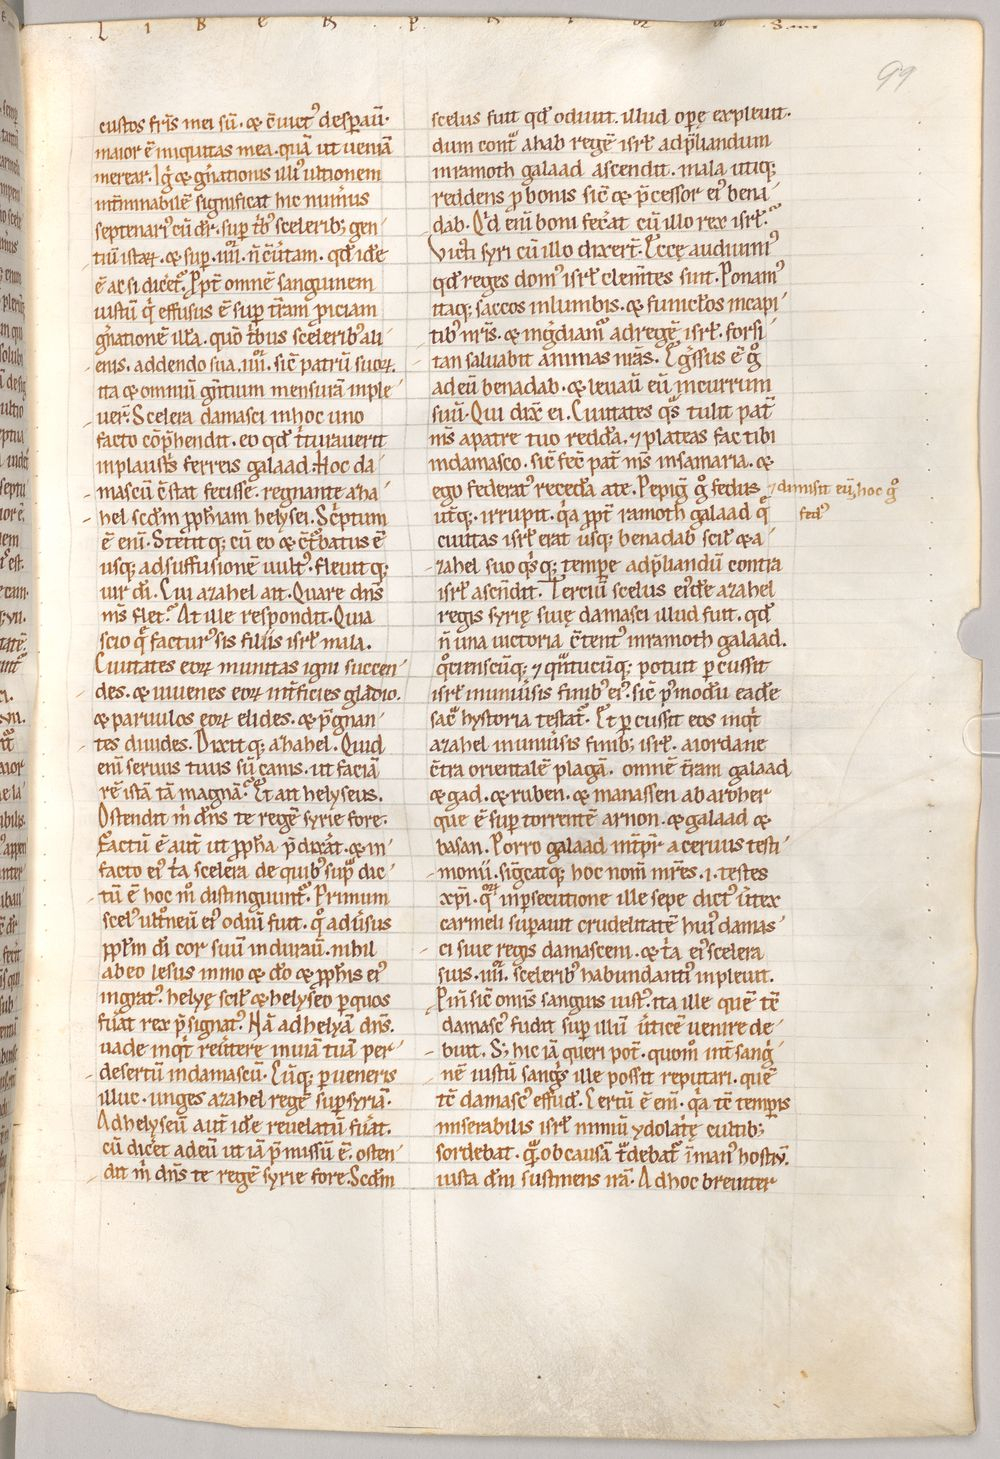 L I B E R P R I M U S
99
custos fr̄is mei sū. & c̄uict᷒ desꝑaū.
maior ē iniquitas mea. quā ut ueniā
merear. Iḡ & gn̄ationis illi᷒ ultionem
int̄minabilē significat hic num̄us
septenari᷒ cū dr̄. suꝑ trib᷒ sceleribꝫ gen
tiū istaꝝ. & suꝑ .iiii. n̄ c̄u̓tam. qđ idē
ē ac si dicēt. Ꝓpt̄ omnē sanguinem
iustū qͥ effusus ē suꝑ t̄ram ꝑiciam
gn̄ationē illā. quō tribus scelerib᷒ ali
enis. addendo sua .iiii. sic̄ patrū suoꝝ.
ita & omniū gn̄tium mensurā inple
uer̄. Scelera damasci in hoc uno
facto cōp̄hendit. eo qđ t̓turauerit
in plaustͥs ferreis galaad. Hoc da
mascū c̄stat fecisse. regnante aza
hel scdm̄ ꝓph̄iam helysei. Sc̓ptum
ē enī. Stetitqꝫ cū eo & c̄t̓batus ē
usqꝫ ad suffusionē uult᷒. fleuitqꝫ
uir dī. Cui azahel ait. Quare dn̄s
m̄s flet? At ille respondit. Quia
scio q̄ factur᷒ sis filiis isrł mala.
Ciuitates eoꝝ munitas igni succen
des. & iuuenes eoꝝ int̓ficies gladio.
& paruulos eoꝝ elides. & p̄gnan
tes diuides. Dixitqꝫ azahel. Quid
enī seruus tuus sū canis. ut faciā
rē istā tā magnā? Et ait helyseus.
Ostendit m̄ dn̄s te regē syrie fore.
Factū ē aut̄ ut ꝓph̄a p̄dixāt. & in
facto ei᷒ t̓a scelera de quib᷒ supͣ dic
tū ē hoc m̊ distinguunt̄. Primum
scel᷒ ult̓neū ei᷒ odiū fuit. qͦ adu̓sus
ppłm dī cor suū indurau̓. nihil
ab eo lesus immo & dō & ꝓph̄is ei᷒
ingrat᷒. helyę scił & helyseo ꝑ quos
fu̓at rex p̄signat᷒. Nā ad helyā dn̄s.
uade inqͥt reu̓tere in uiā tuā per
desertū in damascū. Cūqꝫ ꝑueneris
illuc. unges azahel regē suꝑ syriā.
Ad helyseū aut̄ idē reuelatū fu̓at.
cū dic̓et ad eū ut iā p̄missū ē. osten
dit m̄ dn̄s te regē syrie fore. Scdm̄
scelus fuit qđ odiuit. illud opę expleuit.
dum contͣ ahab regē isrł ad p̄liandum
in ramoth galaad ascendit. mala utiqꝫ
reddens ꝓ bonis sic̄ & p̄cessor ei᷒ bena
dab. Qͥd enī boni fec̓at cū illo rex isrł?
Victi syri cū illo dixer̄t. Ecce audiuim᷒
qđ reges dom᷒ isrł clem̄tes sint. Ponam᷒
itaqꝫ saccos in lumbis. & funiclos in capi
tib᷒ nr̄is. & ing̓diam᷒ ad regē isrł. forsi
tan saluabit animas nr̄as. Eg̓ssus ē g̊
ad eū benadab. & leuau̓ eū in currum
suū. Qui dix̄ ei. Ciuitates qͣs tulit pat̄
m̄s a patre tuo reddā. ⁊ plateas fac tibi
in damasco. sic̄ fec̄ pat̄ m̄s in samaria. &
ego federat᷒ recedā a te. Pepiḡ g̊ fedus
⁊ dimisit eū. hoc g̊
fed᷒
ut̓qꝫ. irrupit. qͥa ꝓpt̄ ramoth galaad q̄
ciuitas isrł erat usqꝫ benadab scił & a
zahel suo qͥsqꝫ tempe ad p̄liandū contra
isrł ascn̄dit. Terciū scelus eidē azahel
regis syrię siue damasci illud fuit. qđ
n̄ una uictoria c̄tent᷒ in ramoth galaad.
qͦcienscūqꝫ ⁊ qͣntucūqꝫ potuit ꝑcussit
isrł in uniu̓sis finib᷒ ei᷒. sic̄ p᷒modū eadē
sacͣ hystoria testat̄. Et ꝑcussit eos inqͥt
azahel in uniu̓sis finibꝫ isrł. a iordane
c̄tra orientalē plagā. omnē t̄ram galaad
& gad. & ruben. & manassen ab aroher
que ē suꝑ torrentē arnon. & galaad &
basan. Porro galaad int̓pr̄ aceruus testi
monii. siḡcatqꝫ hoc nom̄ mr̄es .i. testes
xp̄i. qͦꝝ in psecutione ille sepe dict᷒ u̓tex
carmeli supauit crudelitatē hui᷒ damas
ci siue regis damasceni. & t̓a ei᷒ scelera
suis .iiii. scelerib᷒ habundanti᷒ inpleuit.
Pin̄ sic̄ omīs sanguis iust᷒. ita ille quē tē
damasc᷒ fudit suꝑ illū u̓ticē uenire de
buit. Sꝫ hic iā queri pot̄. quom̊ int̄ sanḡ
nē iustū sangͥs ille possit reputari. quē
tē damasc᷒ effudit. Certū ē enī. qͥa tē temꝑis
miserabilis isrł nimiū ydolatͥę cultibꝫ
sordebat. qͣ ob causā t̓debat̄ ī man᷒ hostiū.
iusta dm̄ sustinens irā. Ad hoc breuiter